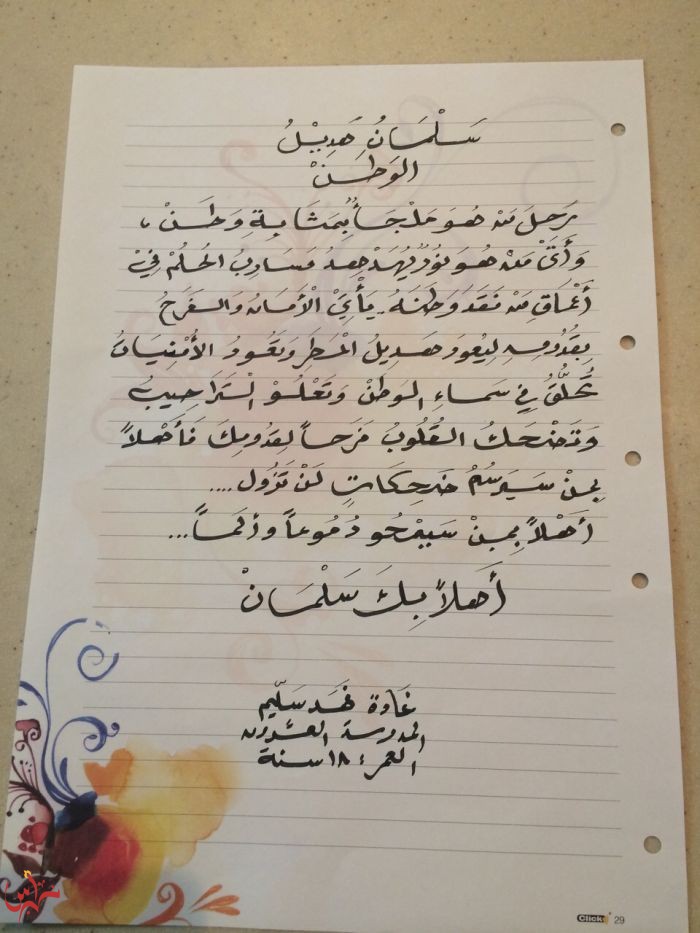 سَلْمَانُ هَدِيْلُ
الوَطَنْ
رَحَلَ مَنْ هُوَ مَلْجَأٌ بِمَثَابَةِ وَطَنْ ،
وَأَتَىْ مَنْ هُوَ نُوْرٌ يُهَدْهِدُ مَسَارِبُ الحُلُمْ فِيْ
أَعْمَاقِ مَنْ فَقَدَ وَطَنَهُ. يَأْتِيْ الْأَمَانُ وَالفَرَحُ
بِقُدُومِهِ لِيَعُودَ هَدِيلُ الْمَطَرِ وَتَعُودُ الأُمْنِيَاتُ
تُحَلِّقُ فِي سَمَاءِ الوَطَنْ وَتَعْلُوْ الْتَرَاحِيبُ
وَتَضْحَكُ القُلُوبُ فَرَحاً لِقُدُومِكَ فَأَهْلاً
بِمَنْ سَيَرسُمُ ضَحِكَاتٍ لَنْ تَزُول ....
أَهْلاً بِمَنْ سَيَمْحُو دُمُوعاً وأَلَماً ...
أَهَلاً بِكَ سَلْمَانْ
غَادة فَهَد سَلِّيم
المدرسة العشرون
العمر: ١٨ سنة
Click 29